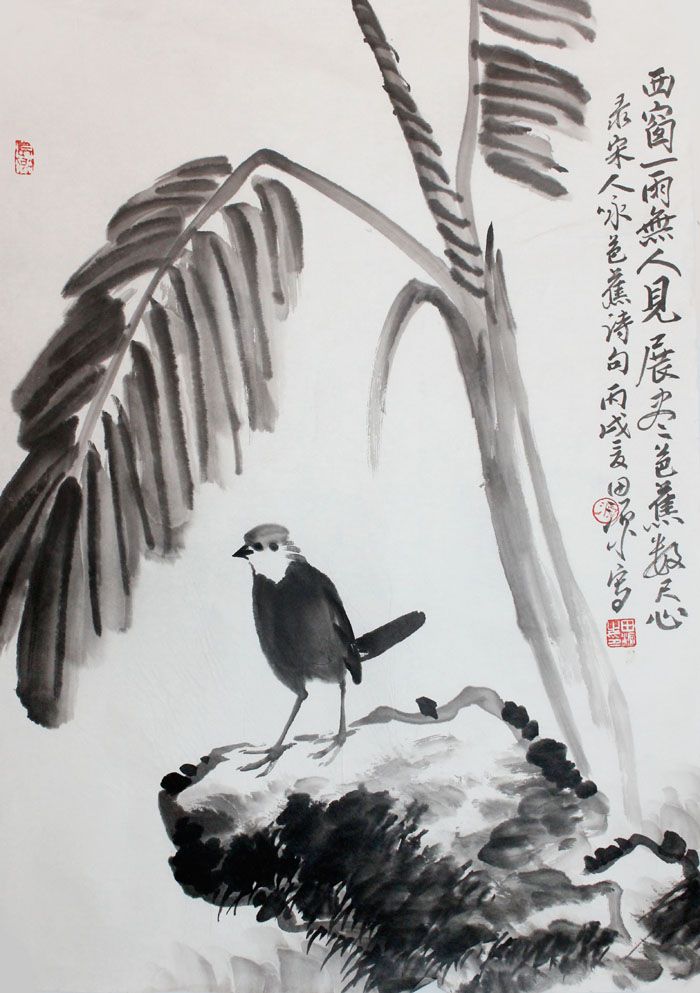 西窗一雨無人見展尽芭蕉数尺心
录宋人咏芭蕉诗句丙戌夏田写